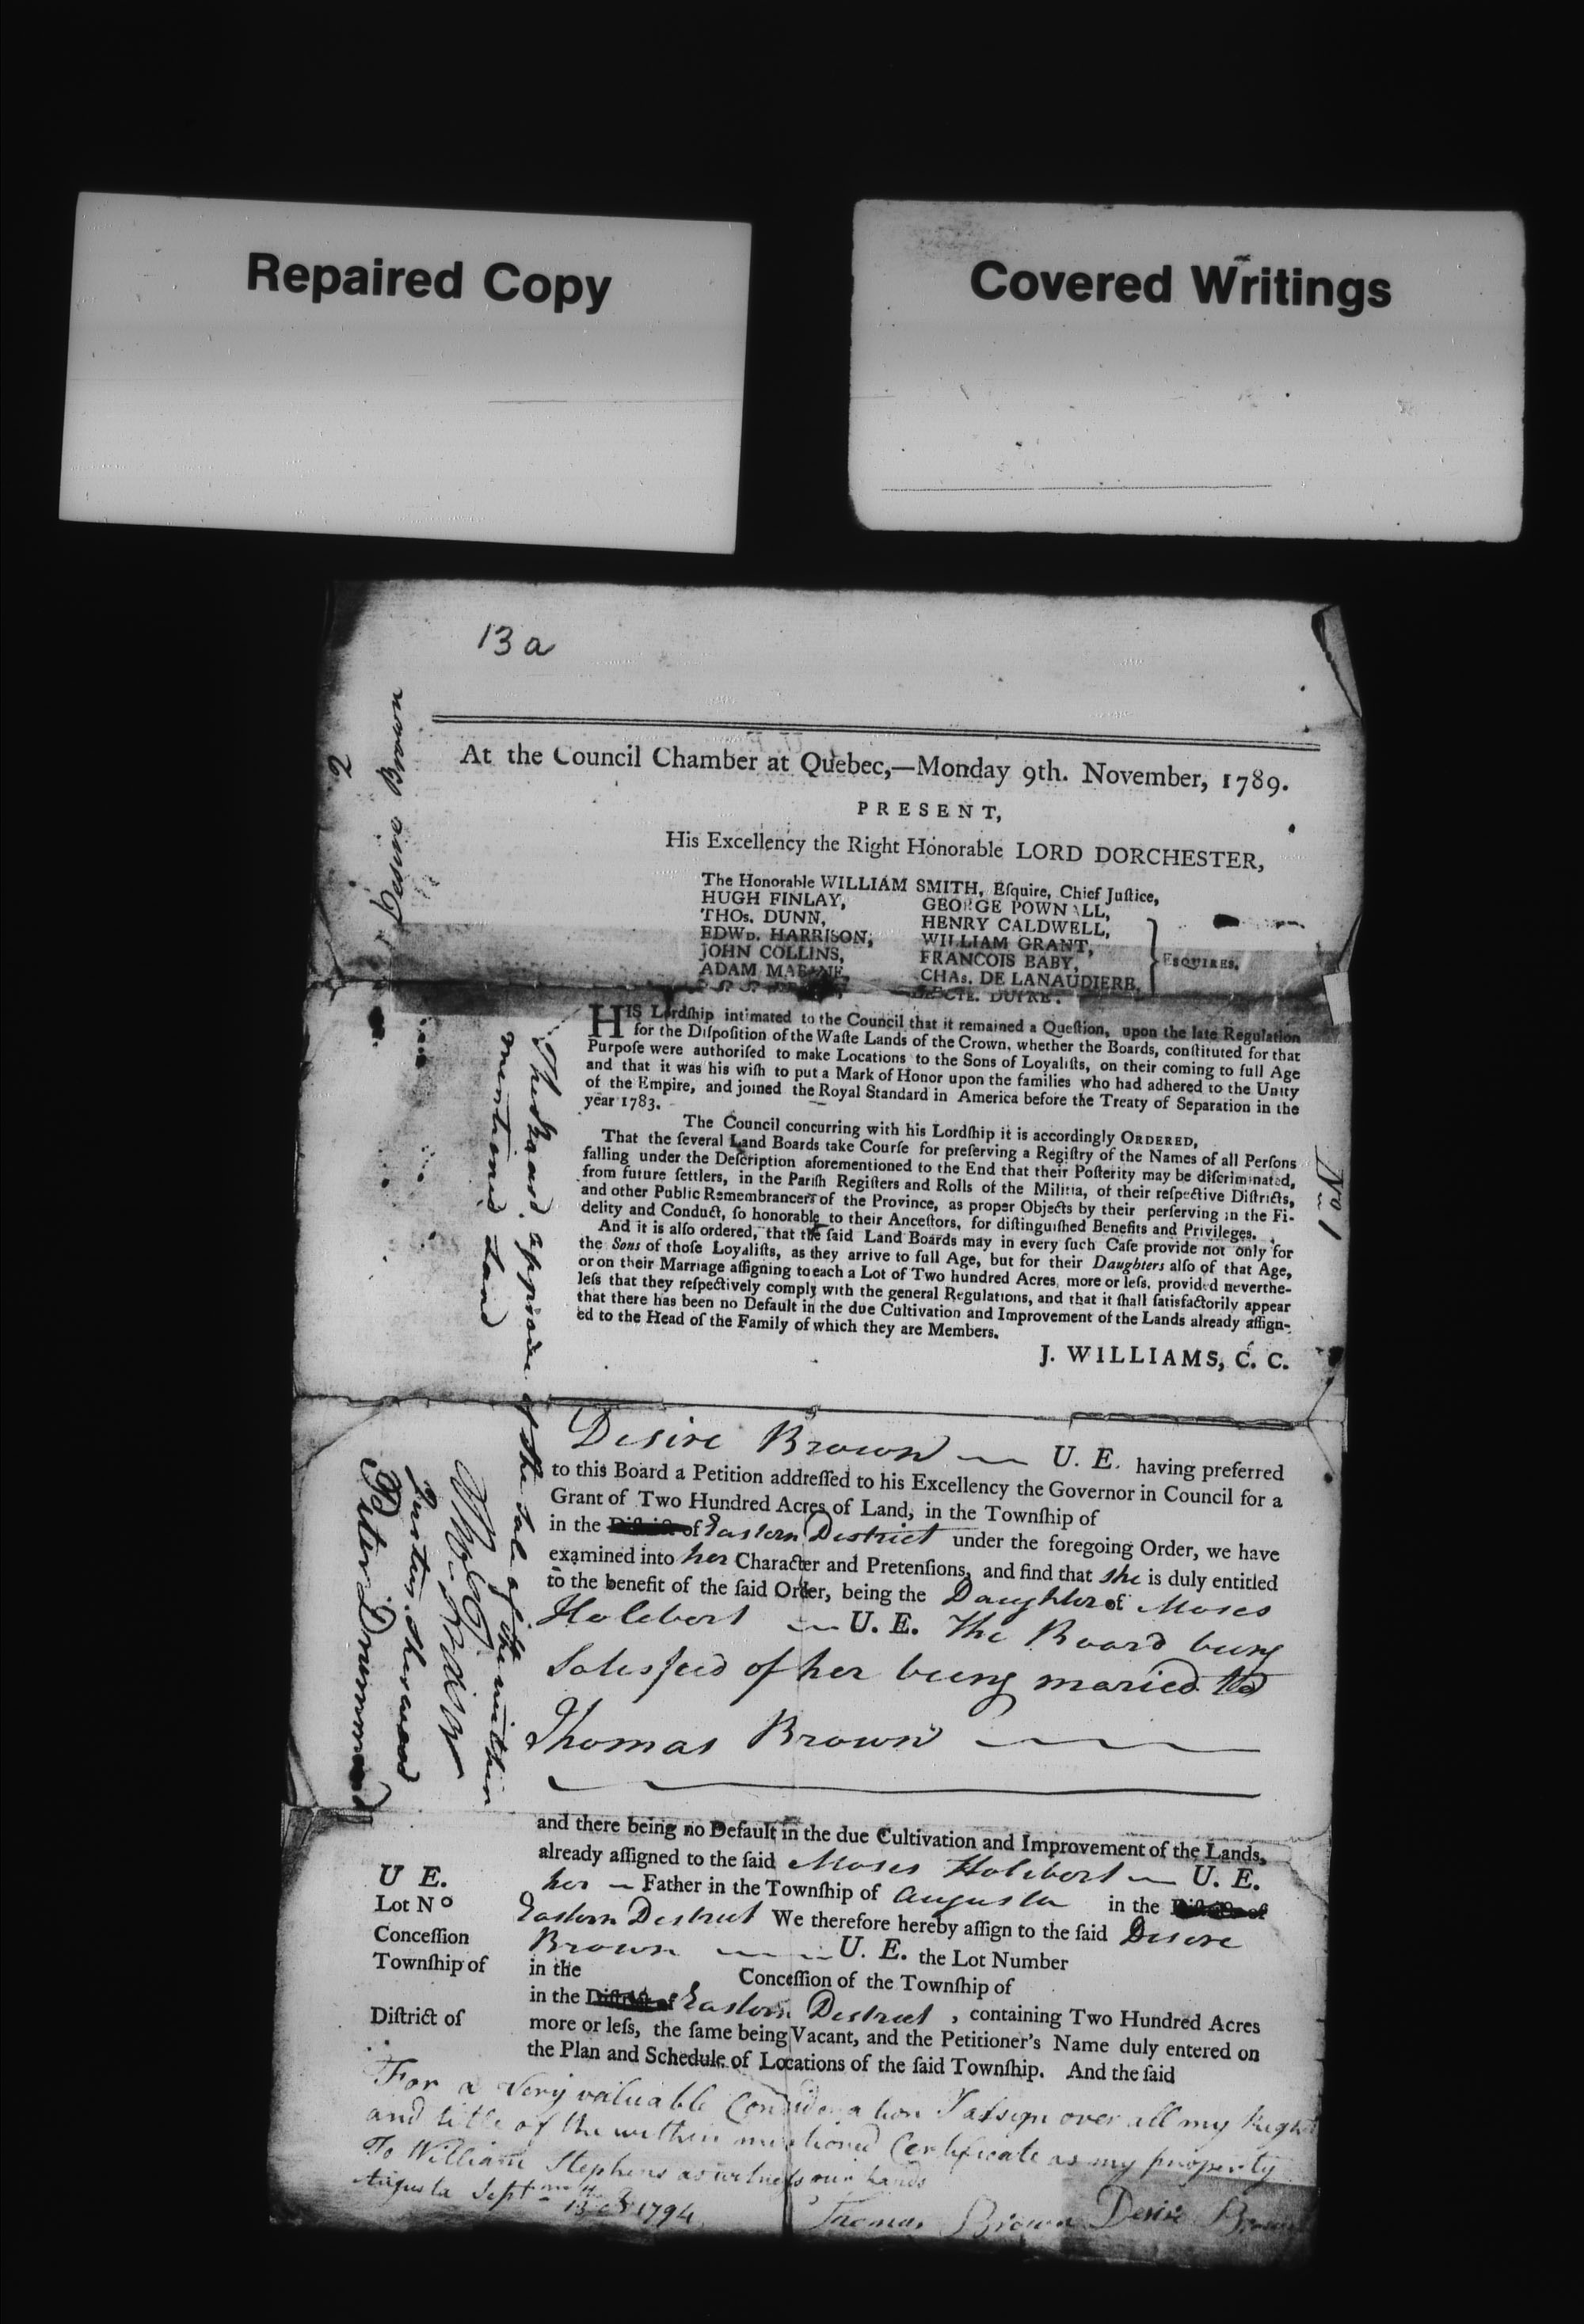 Repaired Copy
Covered Writings
13 a
2
Desire Brown
At the Council Chamber at Quebec,—Monday 9th. November, 1789.
PRESENT,
His Excellency the Right Honorable LORD DORCHESTER,
The Honorable WILLIAM SMITH, Eſquire, Chief Juſtice,
HUGH FINLAY, GEORGE POWNALL,
THOs. DUNN, HENRY CALDWELL,
EDWD. HARRISON, WILLIAM GRANT,
JOHN COLLINS, FRANCOIS BABY,
ADAM MABANE, CHAs. DE LANAUDIERE,
ESQUIRES.
HIS Lordſhip intimated to the Council that it remained a Queſtion, upon the late Regulation
for the Diſpoſition of the Waſte Lands of the Crown, whether the Boards, conſtituted for that
Purpoſe were authoriſed to make Locations to the Sons of Loyaliſts, on their coming to full Age
and that it was his wiſh to put a Mark of Honor upon the families who had adhered to the Unity
of the Empire, and joined the Royal Standard in America before the Treaty of Separation in the
year 1783.
The Council concurring with his Lordſhip it is accordingly ORDERED,
That the ſeveral Land Boards take Courſe for preſerving a Regiſtry of the Names of all Perſons
falling under the Deſcription aforementioned to the End that their Poſterity may be diſcriminated,
from future ſettlers, in the Pariſh Regiſters and Rolls of the Militia, of their reſpective Diſtricts,
and other Public Remembrancers of the Province, as proper Objects by their perſerving in the Fi-
delity and Conduct, ſo honorable to their Anceſtors, for diſtinguiſhed Benefits and Privileges.
And it is alſo ordered, that the ſaid Land Boards may in every ſuch Caſe provide not only for
the Sons of thoſe Loyaliſts, as they arrive to full Age, but for their Daughters alſo of that Age,
or on their Marriage aſſigning to each a Lot of Two hundred Acres, more or leſs, provided neverthe-
leſs that they reſpectively comply with the general Regulations, and that it ſhall ſatisfactorily appear
that there has been no Default in the due Cultivation and Improvement of the Lands already aſſign-
ed to the Head of the Family of which they are Members.
J. WILLIAMS, C. C.
No 1
The Board approve of the Sale of the within
mentioned Land
Justus Sherwood
Peter Drummond
Desire Brown — U. E. having preferred
to this Board a Petition addreſſed to his Excellency the Governor in Council for a
Grant of Two Hundred Acres of Land, in the Townſhip of
in the Diſtrict of Eastern District under the foregoing Order, we have
examined into her Character and Pretenſions, and find that she is duly entitled
to the benefit of the ſaid Order, being the Daughter of Moses
Holebort — U. E. The Board being
Satisfied of her being maried to
Thomas Brown
and there being no Default in the due Cultivation and Improvement of the Lands,
already aſſigned to the ſaid Moses Holebort — U. E.
her — Father in the Townſhip of Augusta in the Diſtrict of
Eastern District We therefore hereby aſſign to the ſaid Desire
Brown — U. E. the Lot Number
in the Conceſſion of the Townſhip of
in the Diſtrict of Eastern District, containing Two Hundred Acres
more or leſs, the ſame being Vacant, and the Petitioner's Name duly entered on
the Plan and Schedule of Locations of the ſaid Townſhip. And the ſaid
U E.
Lot No
Conceſſion
Townſhip of
Diſtrict of
For a Very valuable Consideration I assign over all my Right
and title of the within mentioned Certificate as my property
To William Stephens as witness our hands
Augusta Sept 1794
Thomas Brown Desire Brown